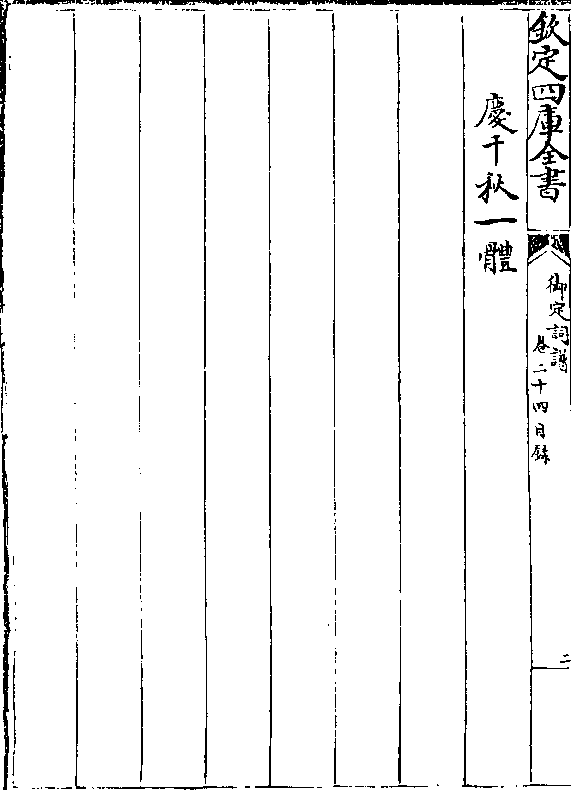 欽定四庫全書
御定詞譜
卷二十四目錄
二
慶千秋一體